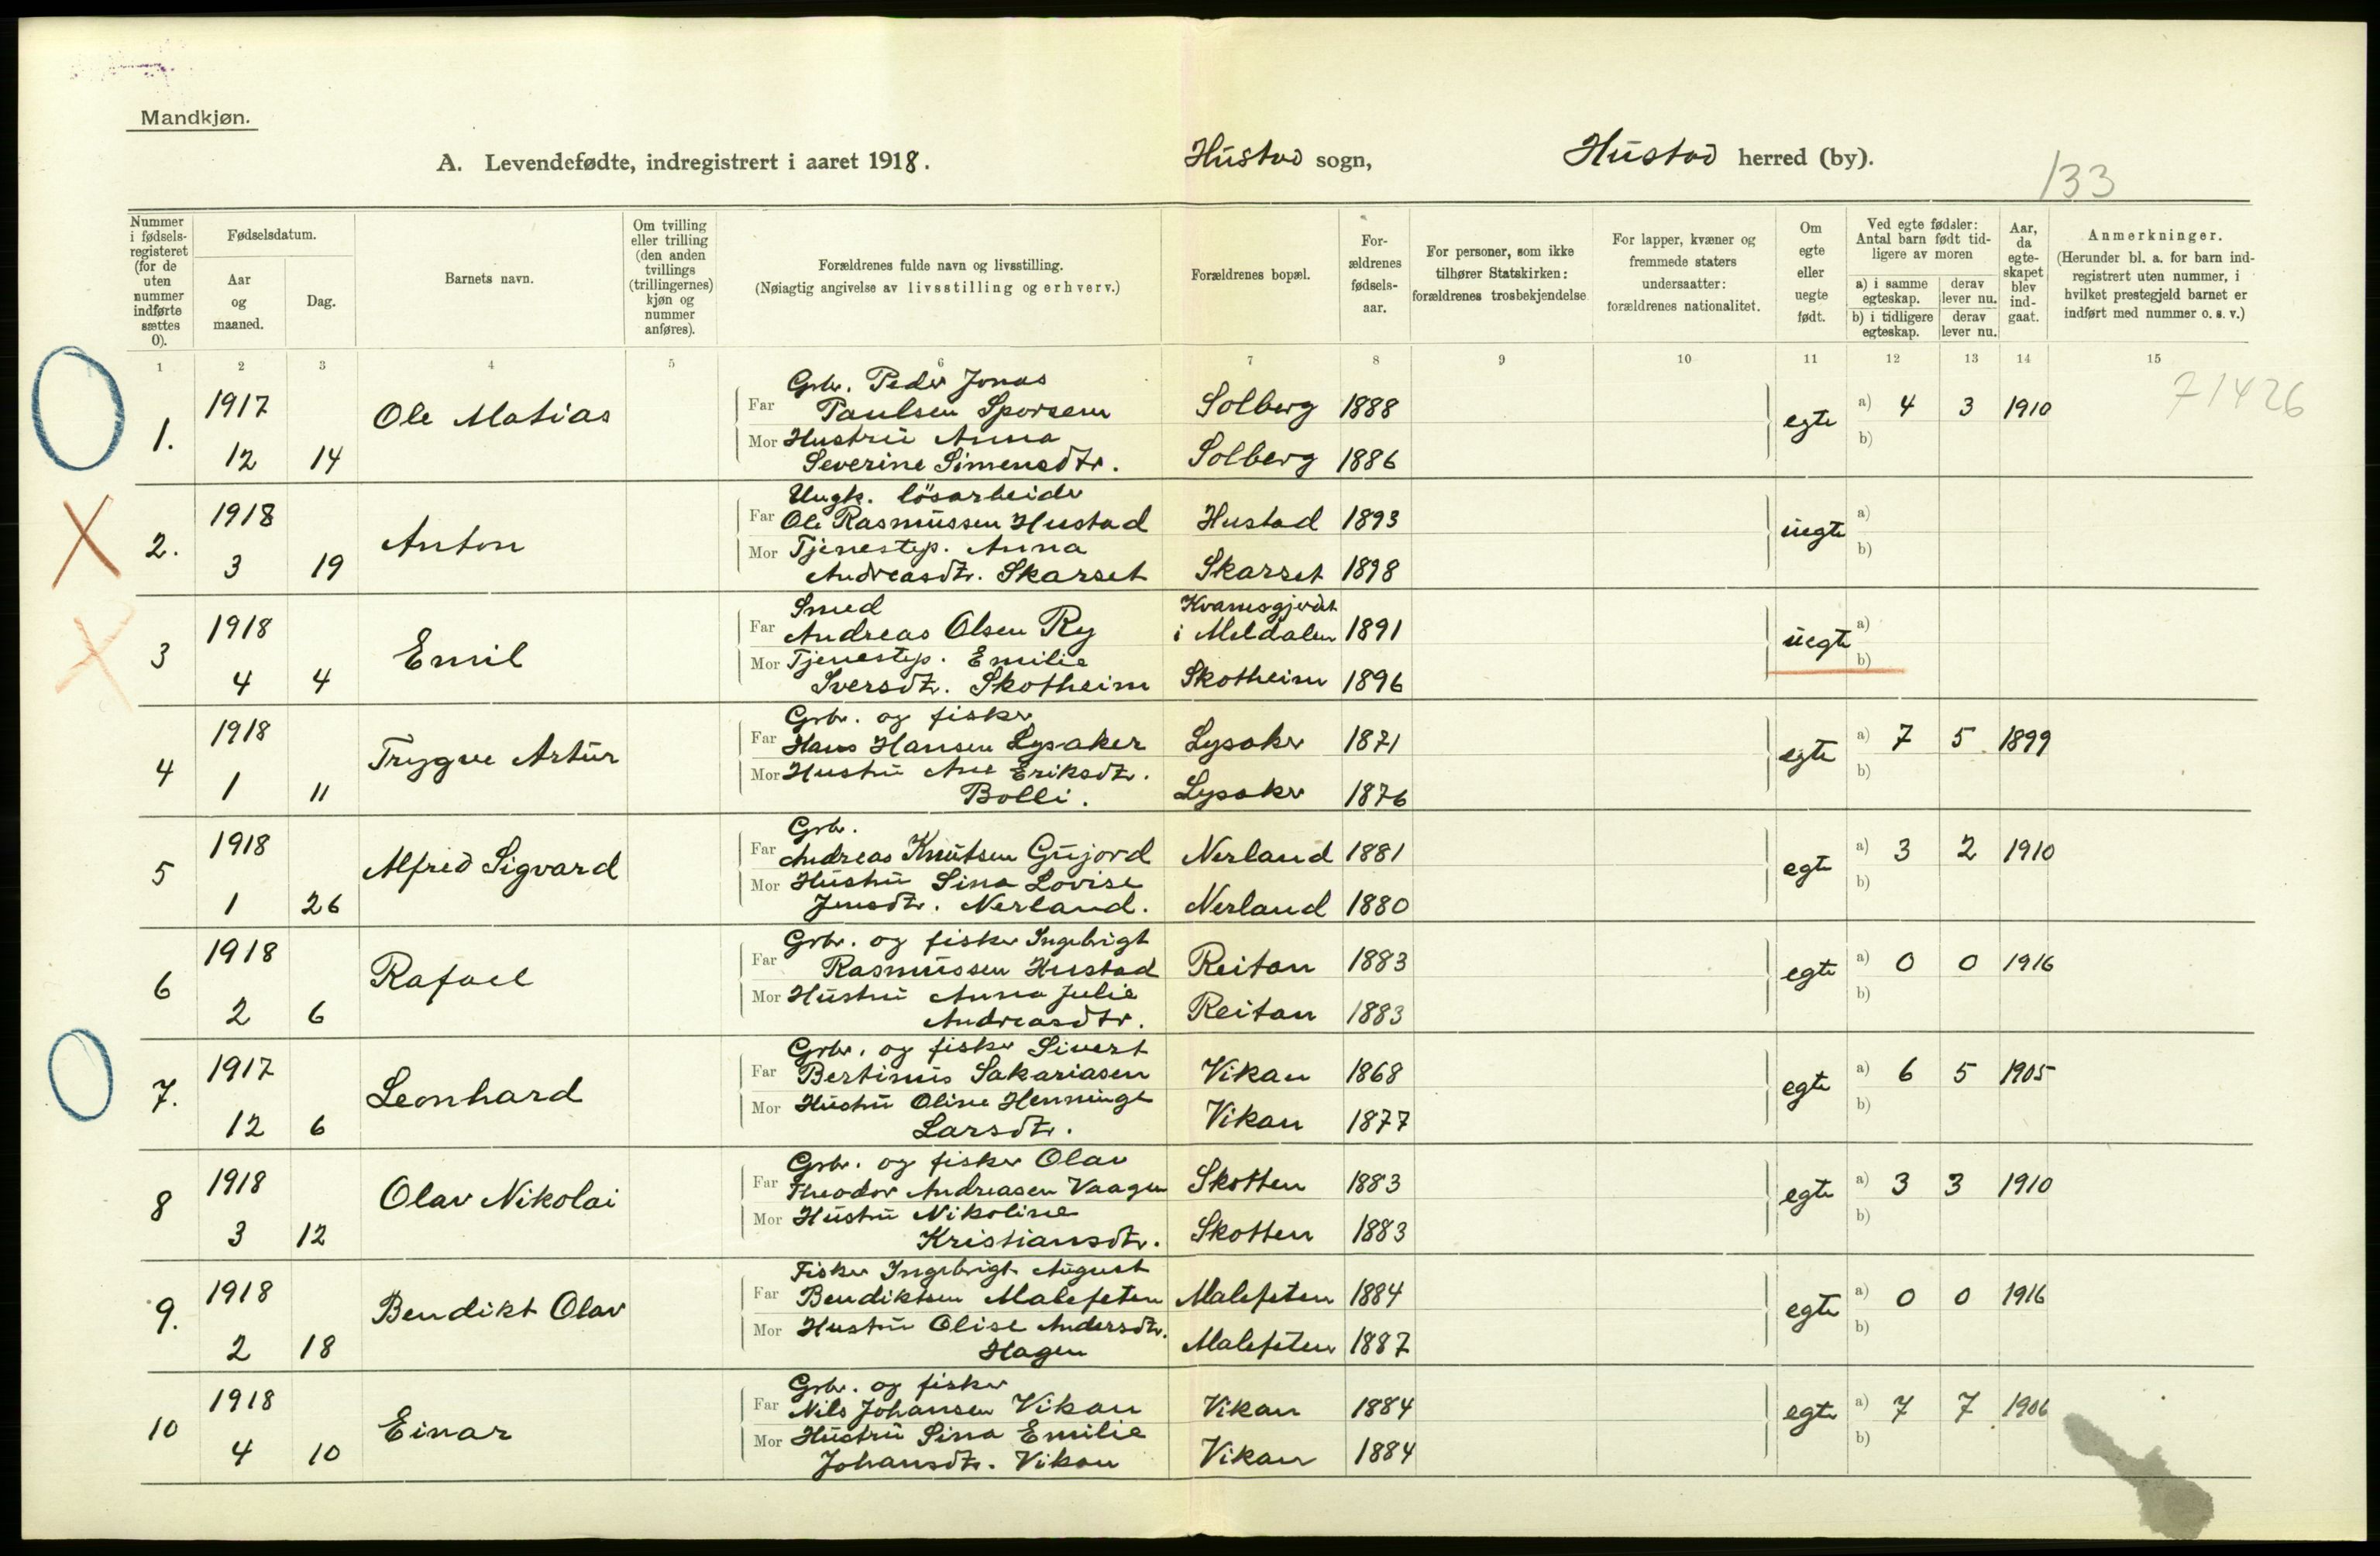 Mandkjøn.
A. Levendefødte, indregistrert i aaret 1918. Hustad sogn, Hustad herred (by).
133
Nummer i fødsels-registeret (for de uten nummer indførte sættes 0).
Fødselsdatum.
Aar og maaned.
Dag.
Barnets navn.
Om tvilling eller trilling (den anden tvillings (trillingernes) kjøn og nummer anføres).
Forældrenes fulde navn og livsstilling.
(Nøiagtig angivelse av livsstilling og erhverv.)
Forældrenes bopæl.
For-ældrenes fødsels-aar.
For personer, som ikke tilhører Statskirken: forældrenes trosbekjendelse
For lapper, kvæner og fremmede staters undersaatter: forældrenes nationalitet.
Om egte eller uegte født.
Ved egte fødsler: Antal barn født tid-ligere av moren
a) i samme egteskap. derav lever nu.
b) i tidligere egteskap. derav lever nu.
Aar, da egte-skapet blev ind-gaat.
Anmerkninger.
(Herunder bl. a. for barn ind-registrert uten nummer, i hvilket prestegjeld barnet er indført med nummer o. s. v.)
1 2 3 4 5 6 7 8 9 10 11 12 13 14 15
71426
1. 1917 12 14 Ole Matias
Grbr. Peder Jonas
Far Paulsen Sporsem Solberg 1888
Mor Hustru Anna
Severine Simensdtr. Solberg 1886
egte a) 4 3 1910
b)
2. 1918 3 19 Anton
Ungk. løsarbeider
Far Ole Rasmussen Hustad Hustad 1893
Mor Tjenestep. Anna
Andreasdtr. Skarset Skarset 1898
uegte a)
b)
3 1918 4 4 Emil
Smed Kvamsgjerdet
Far Andreas Olsen Ry i Meldalen 1891
Mor Tjenestep. Emilie
Iversdtr. Skotheim Skotheim 1896
uegte a)
b)
4 1918 1 11 Trygve Artur
Grbr. og fisker
Far Hans Hansen Lysaker Lysaker 1871
Mor Hustru Ane Eriksdtr.
Bolli. Lysaker 1876
egte a) 7 5 1899
b)
5 1918 1 26 Alfred Sigvard
Grbr.
Far Andreas Knutsen Gujord Nerland 1881
Mor Hustru Sina Lovise
Jensdtr. Nerland. Nerland 1880
egte a) 3 2 1910
b)
6 1918 2 6 Rafael
Grbr. og fisker Ingebrigt
Far Rasmussen Hustad Reitan 1883
Mor Hustru Anna Julie
Andreasdtr. Reitan 1883
egte a) 0 0 1916
b)
7. 1917 12 6 Leonhard
Grbr. og fisker Sivert
Far Bertinus Sakariasen Vikan 1868
Mor Hustru Oline Henninge
Larsdtr. Vikan 1877
egte a) 6 5 1905
b)
8 1918 3 12 Olav Nikolai
Grbr. og fisker Olav
Far Theodor Andreasen Vaagen Skotten 1883
Mor Hustru Nikoline
Kristiansdtr. Skotten 1883
egte a) 3 3 1910
b)
9. 1918 2 18 Bendikt Olav
Fisker Ingebrigt August
Far Bendiktsen Malefeten Malefeten 1884
Mor Hustru Olise Andersdtr.
Hagen Malefeten 1887
egte a) 0 0 1916
b)
10 1918 4 10 Einar
Grbr. og fisker
Far Nils Johansen Vikan Vikan 1884
Mor Hustru Sina Emilie
Johansdtr. Vikan Vikan 1884
egte a) 7 7 1906
b)